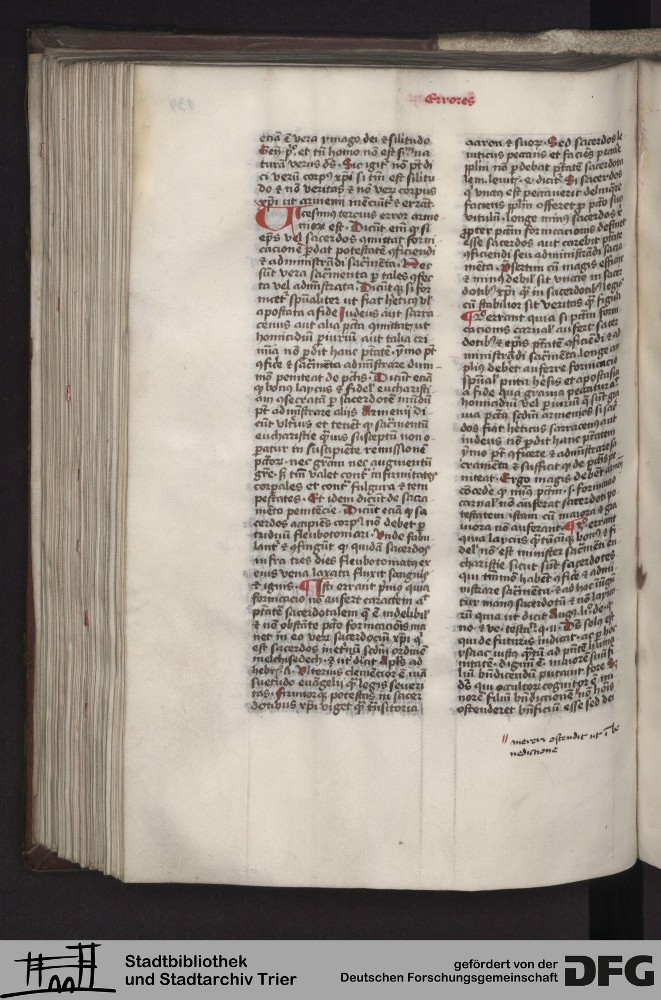 Errores
etiā ē vera ymago dei & silitudo
Geñ. pº. et tñ homo nō est scdm na
turā verus ds. Sic igit nō pt di
ci verū corpꝰ xpi si tm̄ est silitu
do & nō veritas & nō verū corpus
xpi ut armeni mēciūt & errāt
Vicesimus tercius error arme
niorꝫ est. Dicūt em̄ ꝙ si
eps vel sacerdos ꝯmittat forni
cacionē ꝑdat potestatē ꝯficiendi
& administrādi sacramēta. Nec
sūt vera sacramenta ꝑ tales ꝯfec
ta vel administrata. Dicūt ꝙ si for
nicet spūaliter ut fiat heticꝰ vl
apostata a fide Iudeus aut sarra
cenus aut alia pctā ꝯmittat ut
homicidiū ꝑiuriū aut talia cri
mīa nō ꝑdit hanc ptātē ymo pt
ꝯficere & sacramēta administrare dum
mō peniteat de pctis. Dicūt etiā
ꝙ bonꝰ laycus & fidel' eucharisti
am ꝯsecratam ꝑ sacerdotē mūdū
pt administrare aliis Armenii di
cūt ulteriꝰ et tenēt ꝙ sacramentū
eucharistie quis susceptū non o
patur in suscipiente remissionē
pctorꝫ. nec gram nec augmentū
gre. si tm̄ valet contra infirmitates
corpales et contra fulgura & tem
pestates. Et idem dicūt de sacra
mēto penitēcie. Dicūt etiā ꝙ sa
cerdos accipiēs corpꝰ nō debet ꝑ
triduū fleubotomari. Vnde fabu
lant & ꝯfingūt ꝙ quidā sacerdos
infra tres dies fleubotomatꝰ ex
eius vena laxata fluxit sanguis
& ignis. Isti errant primo quia
fornicacio nō aufert caractem a
ptātē sacerdotalem que ē indelibil'
& nō obstāte pctō fornicacionis ma
net in eo verū sacerdociū xpi qui
est sacerdos in etnū scdm ordinē
melchisedech. & ut dicit Apls ad
hebr. Ulterius clemēcior ē mā
suetudo euāgelii quam legis severi
tas. firmiorqꝫ potestas in sacer
dotibus xpi viget quam transitoria
aaron & suorꝫ. Sed sacerdos le
viticus peccans et faciēs peccare
plm nō perdebat ptātē sacerdota
lem. levit. dicit. Si sacerdos
qui vnctus est peccaverit delinqre
faciens plm offeret ꝑ pctō suo
vitulū. longe minꝰ sacerdos
propter pctm fornicacionis desinit
esse sacerdos aut carebit ptāte
ꝯficiendi seu administrādi sacra
mēta. Presertim cū magis efficax
& minꝰ debil' sit vnctio in sacer
dotibꝰ xpi quam in sacerdotibꝰ legis
cū stabilior sit veritas quam figura
errant quia si pctm forni
cacionis carnal' aufert sacer
dotibꝰ & epis ptātē ꝯficiēdi & ad
ministrādi sacramēta. longe am
pliꝰ debet auferre fornicacio
spūal' puta hesis et apostasia
a fide quia graviꝰ peccatur
homicidiū vel ꝑiuriū
sua pctā scdm armenios si sacer
dos fiat heticus sarracenus aut
iudeus nō ꝑdit hanc ptātem
ymo pt ꝯficere & administrare sa
cramēta & sufficit ꝙ de pctis pe
niteat. Ergo magis debet
ꝯcedere ꝙ minꝰ pctm. s. fornicacio
carnal' nō auferat sacerdoti po
testatem istam cū maiora & gra
viora nō auferant. errant
quia laycus quantūcūqꝫ bonꝰ & fi
del' nō est minister sacramēti eu
charistie sicut sūt sacerdotes
qui immo habēt ꝯficere & admi
nistrare sacramēta. & ad hoc vngū
tur manus sacerdotū & nō layco
rū quia ut dicit Augꝰ. li. de. q.
no. & ve. testi. q. ii. Ds solꝰ
qui de futuris iudicat. ac ꝑ hoc
ysaac iusta quantū ad pntē humani
mitatē. dignū ē maiorē suū fi
liū bndicendū putavit fore Sed
ds qui occultorꝫ cognitor ē mi
norē filiū bndictione non homīs
ostenderet bnficiū esse sed dei
mereri ostendit ut in be
nedictione
Stadtbibliothek
und Stadtarchiv Trier
gefördert von der
Deutschen Forschungsgemeinschaft
DFG